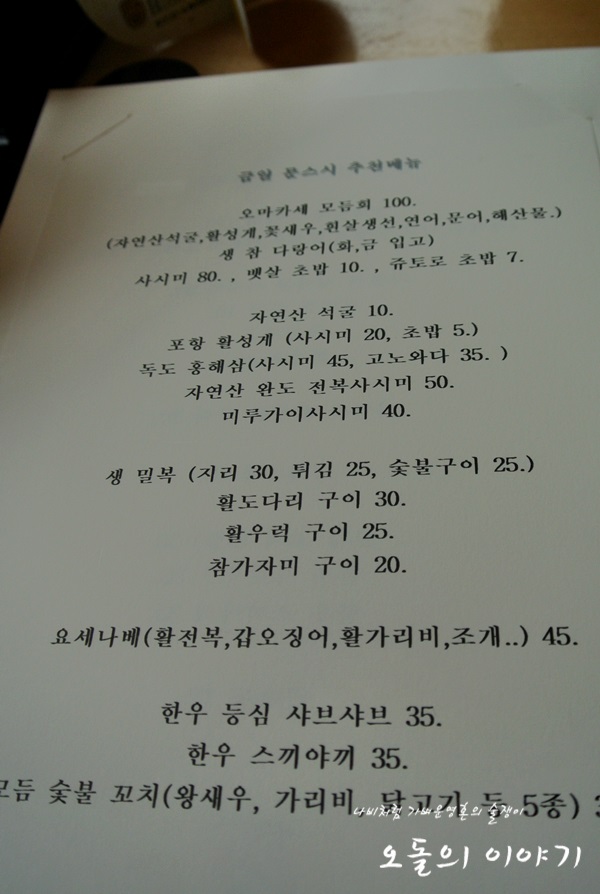 금일 문스시 추천메뉴
오마카세 모듬회 100.
(자연산석굴,활성게,꽃새우,흰살생선,연어,문어,해산물.)
생 참 다랑어(화,금 입고)
사시미 80. , 뱃살 초밥 10. , 쥬토로 초밥 7.
자연산 석굴 10.
포항 활성게 (사시미 20, 초밥 5.)
독도 홍해삼(사시미 45, 고노와다 35. )
자연산 완도 전복사시미 50.
미루가이사시미 40.
생 밀복 (지리 30, 튀김 25, 숯불구이 25.)
활도다리 구이 30.
활우럭 구이 25.
참가자미 구이 20.
요세나베(활전복,갑오징어,활가리비,조개..) 45.
한우 등심 샤브샤브 35.
한우 스끼야끼 35.
모듬 숯불 꼬치(왕새우, 가리비, 닭고기 등 5종)
나비처럼 가벼운영혼의 술쟁이
오돌의 이야기